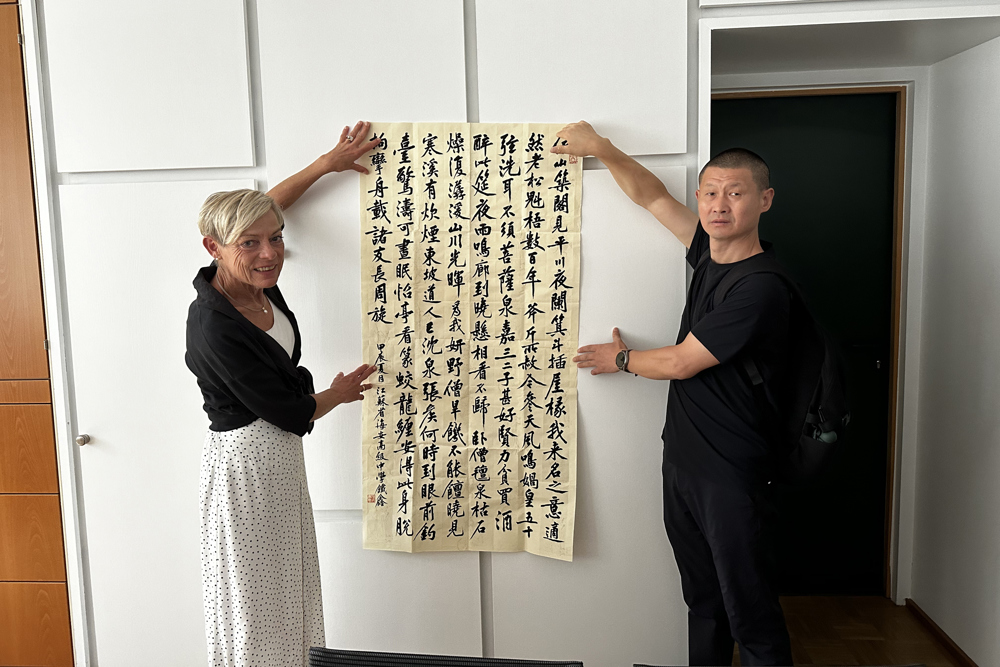 山築閣見平川夜闌箕斗插屋椽我来名之意適
然老松魁梧數百年斧斤所赦今參天風鳴媧皇五十
弦洗耳不須菩薩泉嘉二三子甚好賢力貧買酒
醉此筵夜雨鳴廊到曉懸相看不歸卧僧氊泉枯石
燥復潺湲山川光暉為我妍野僧旱饑不能饘曉見
寒溪有炊煙東坡道人已沈泉張侯何時到眼前釣
臺驚濤可晝眠怡亭看篆蛟龍纏安得此身脫
拘攣舟載諸友長周旋
甲辰夏月江蘇省海安高級中學鐵鑫